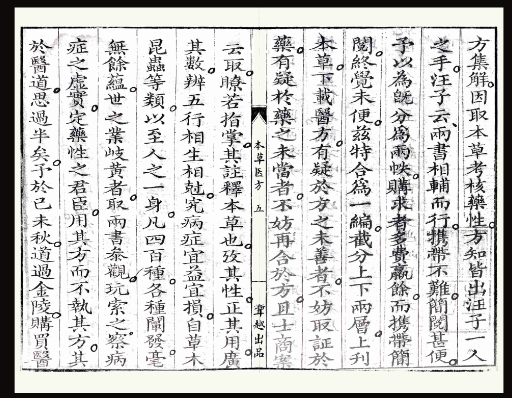 方集解因取本草考核藥性方知皆出汪子一人
之手汪子云兩書相輔而行攜帶不難簡閱甚便
予以為旣分為兩帙購求者多費贏餘而攜帶簡
閱終覺未便茲特合為一編截分上下兩層上刋
本草下載醫方有疑於方之未善者不妨取証於
藥有疑於藥之未當者不妨再合於方且士商案
本草医方 五
章越出品
云取瞭若指掌其註釋本草也攷其性正其用廣
其数辨五行相生相尅究病症宜益宜損自草木
昆蟲等類以至人之一身凡四百種各種闡發毫
無餘蘊世之業岐黃者取兩書參觀玩索之察病
症之虛實定藥性之君臣用其方而不執其方其
於醫道思過半矣予於己未秋道過金陵購買醫